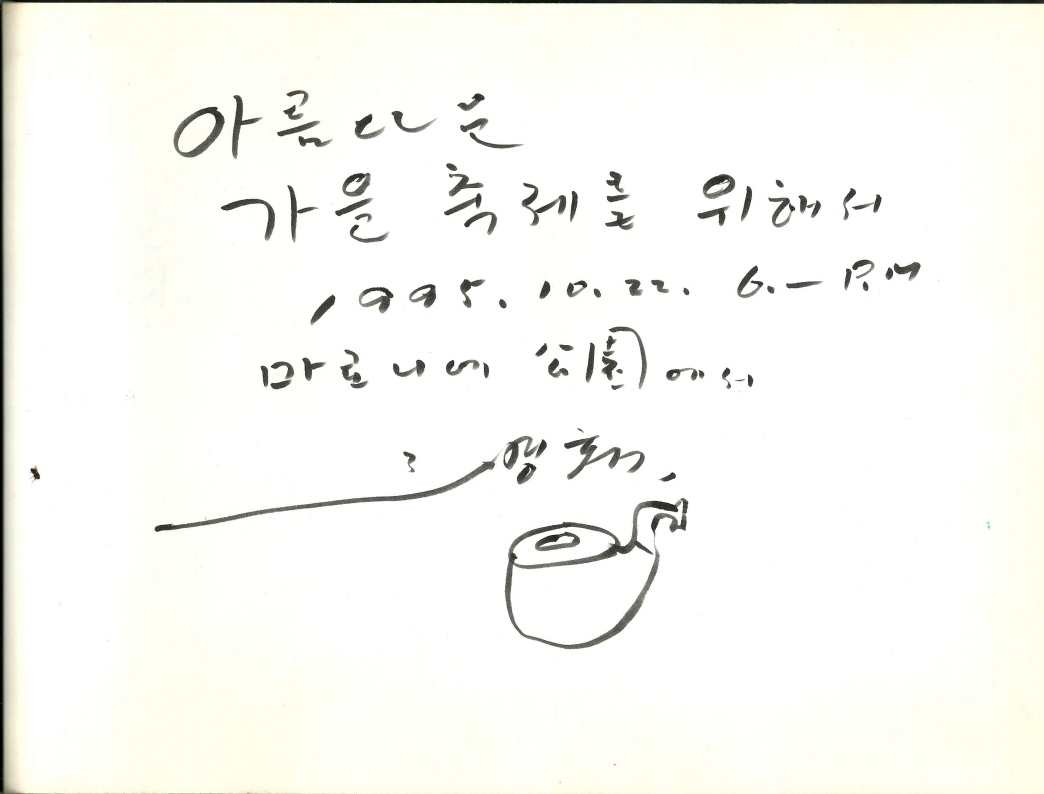 아름다운
가을 축제를 위해서
1995. 10. 22. 6.- P.M
마로니에 公園에서